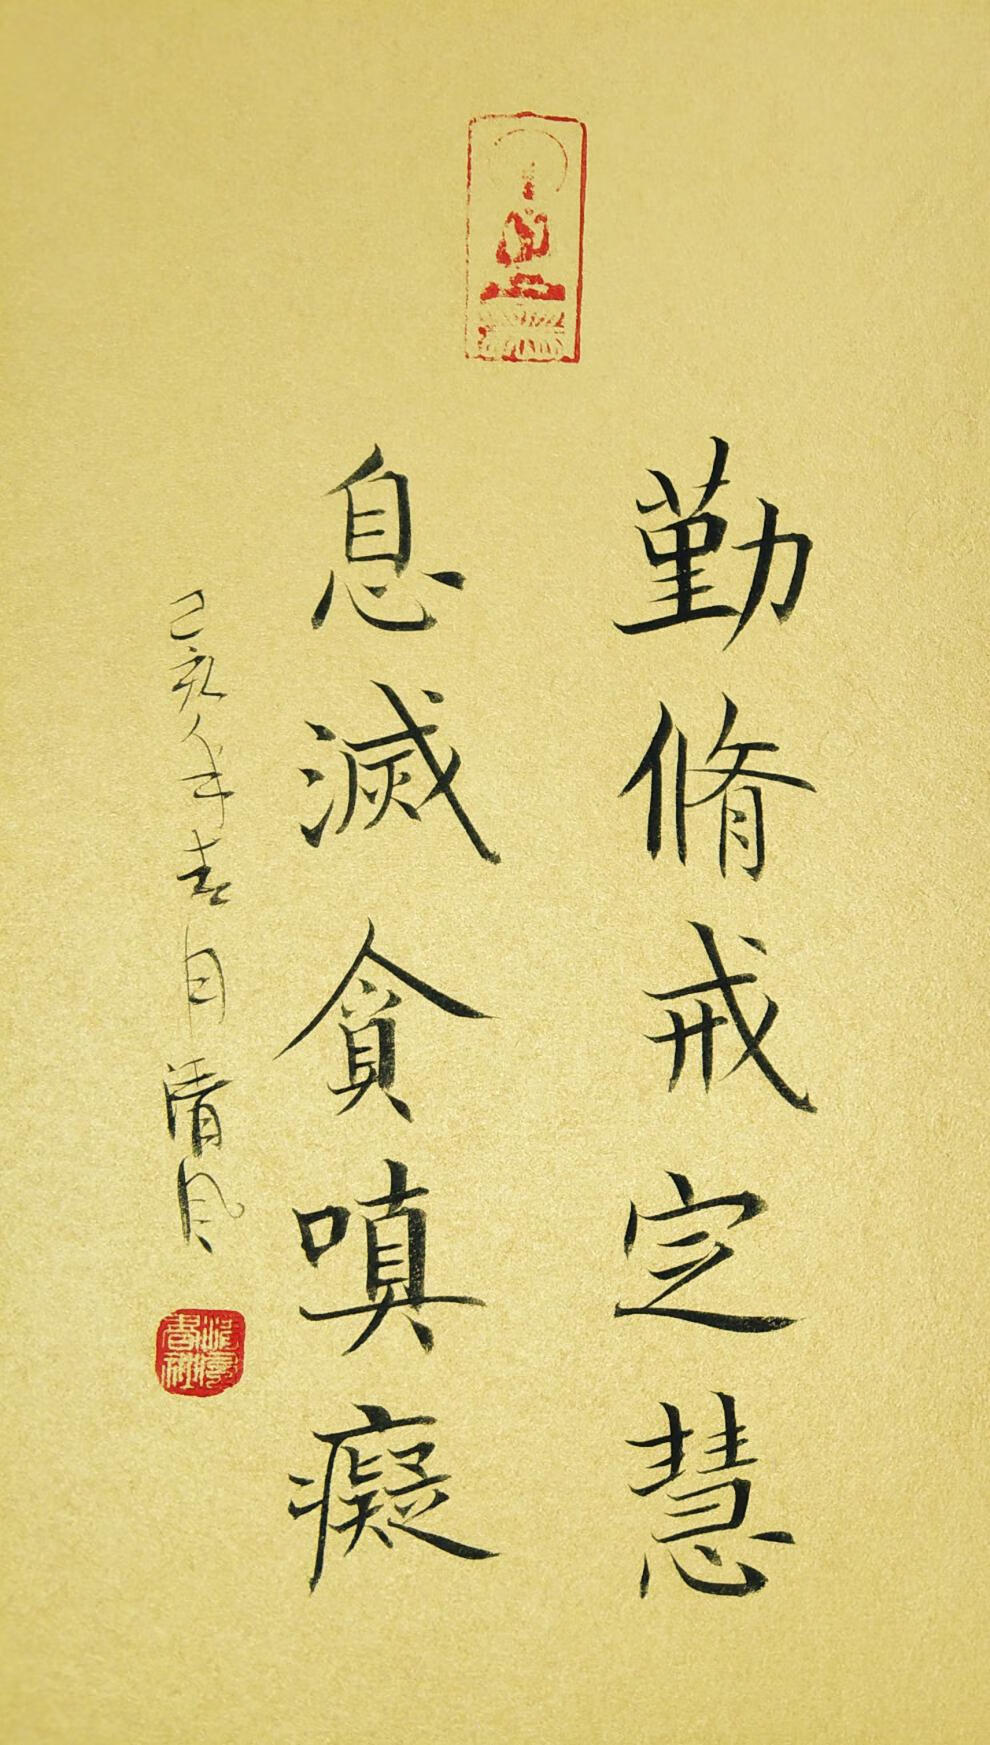 勤脩戒定慧
息滅貪嗔癡
己亥年吉月清風